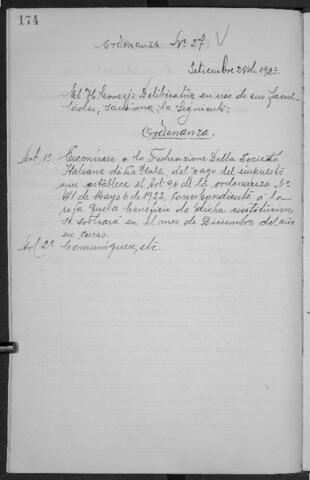 174
Ordenanza Nº 27
Setiembre 28 de 1923.
El H. Consejo Deliberativo en uso de sus facul-
tades, sanciona la siguiente:
Ordenanza.
Art 1º Exonérese a la Federazione Della Societá
Italiane di La Plata del pago del impuesto
que establece el Art 94 de la ordenanza Nº
41 de Mayo 6 de 1922, correspondiente a la
rifa que a beneficio de dicha institucion,
se sorteará en el mes de Diciembre del año
en curso.
Art 2º Comuniquese, etc.